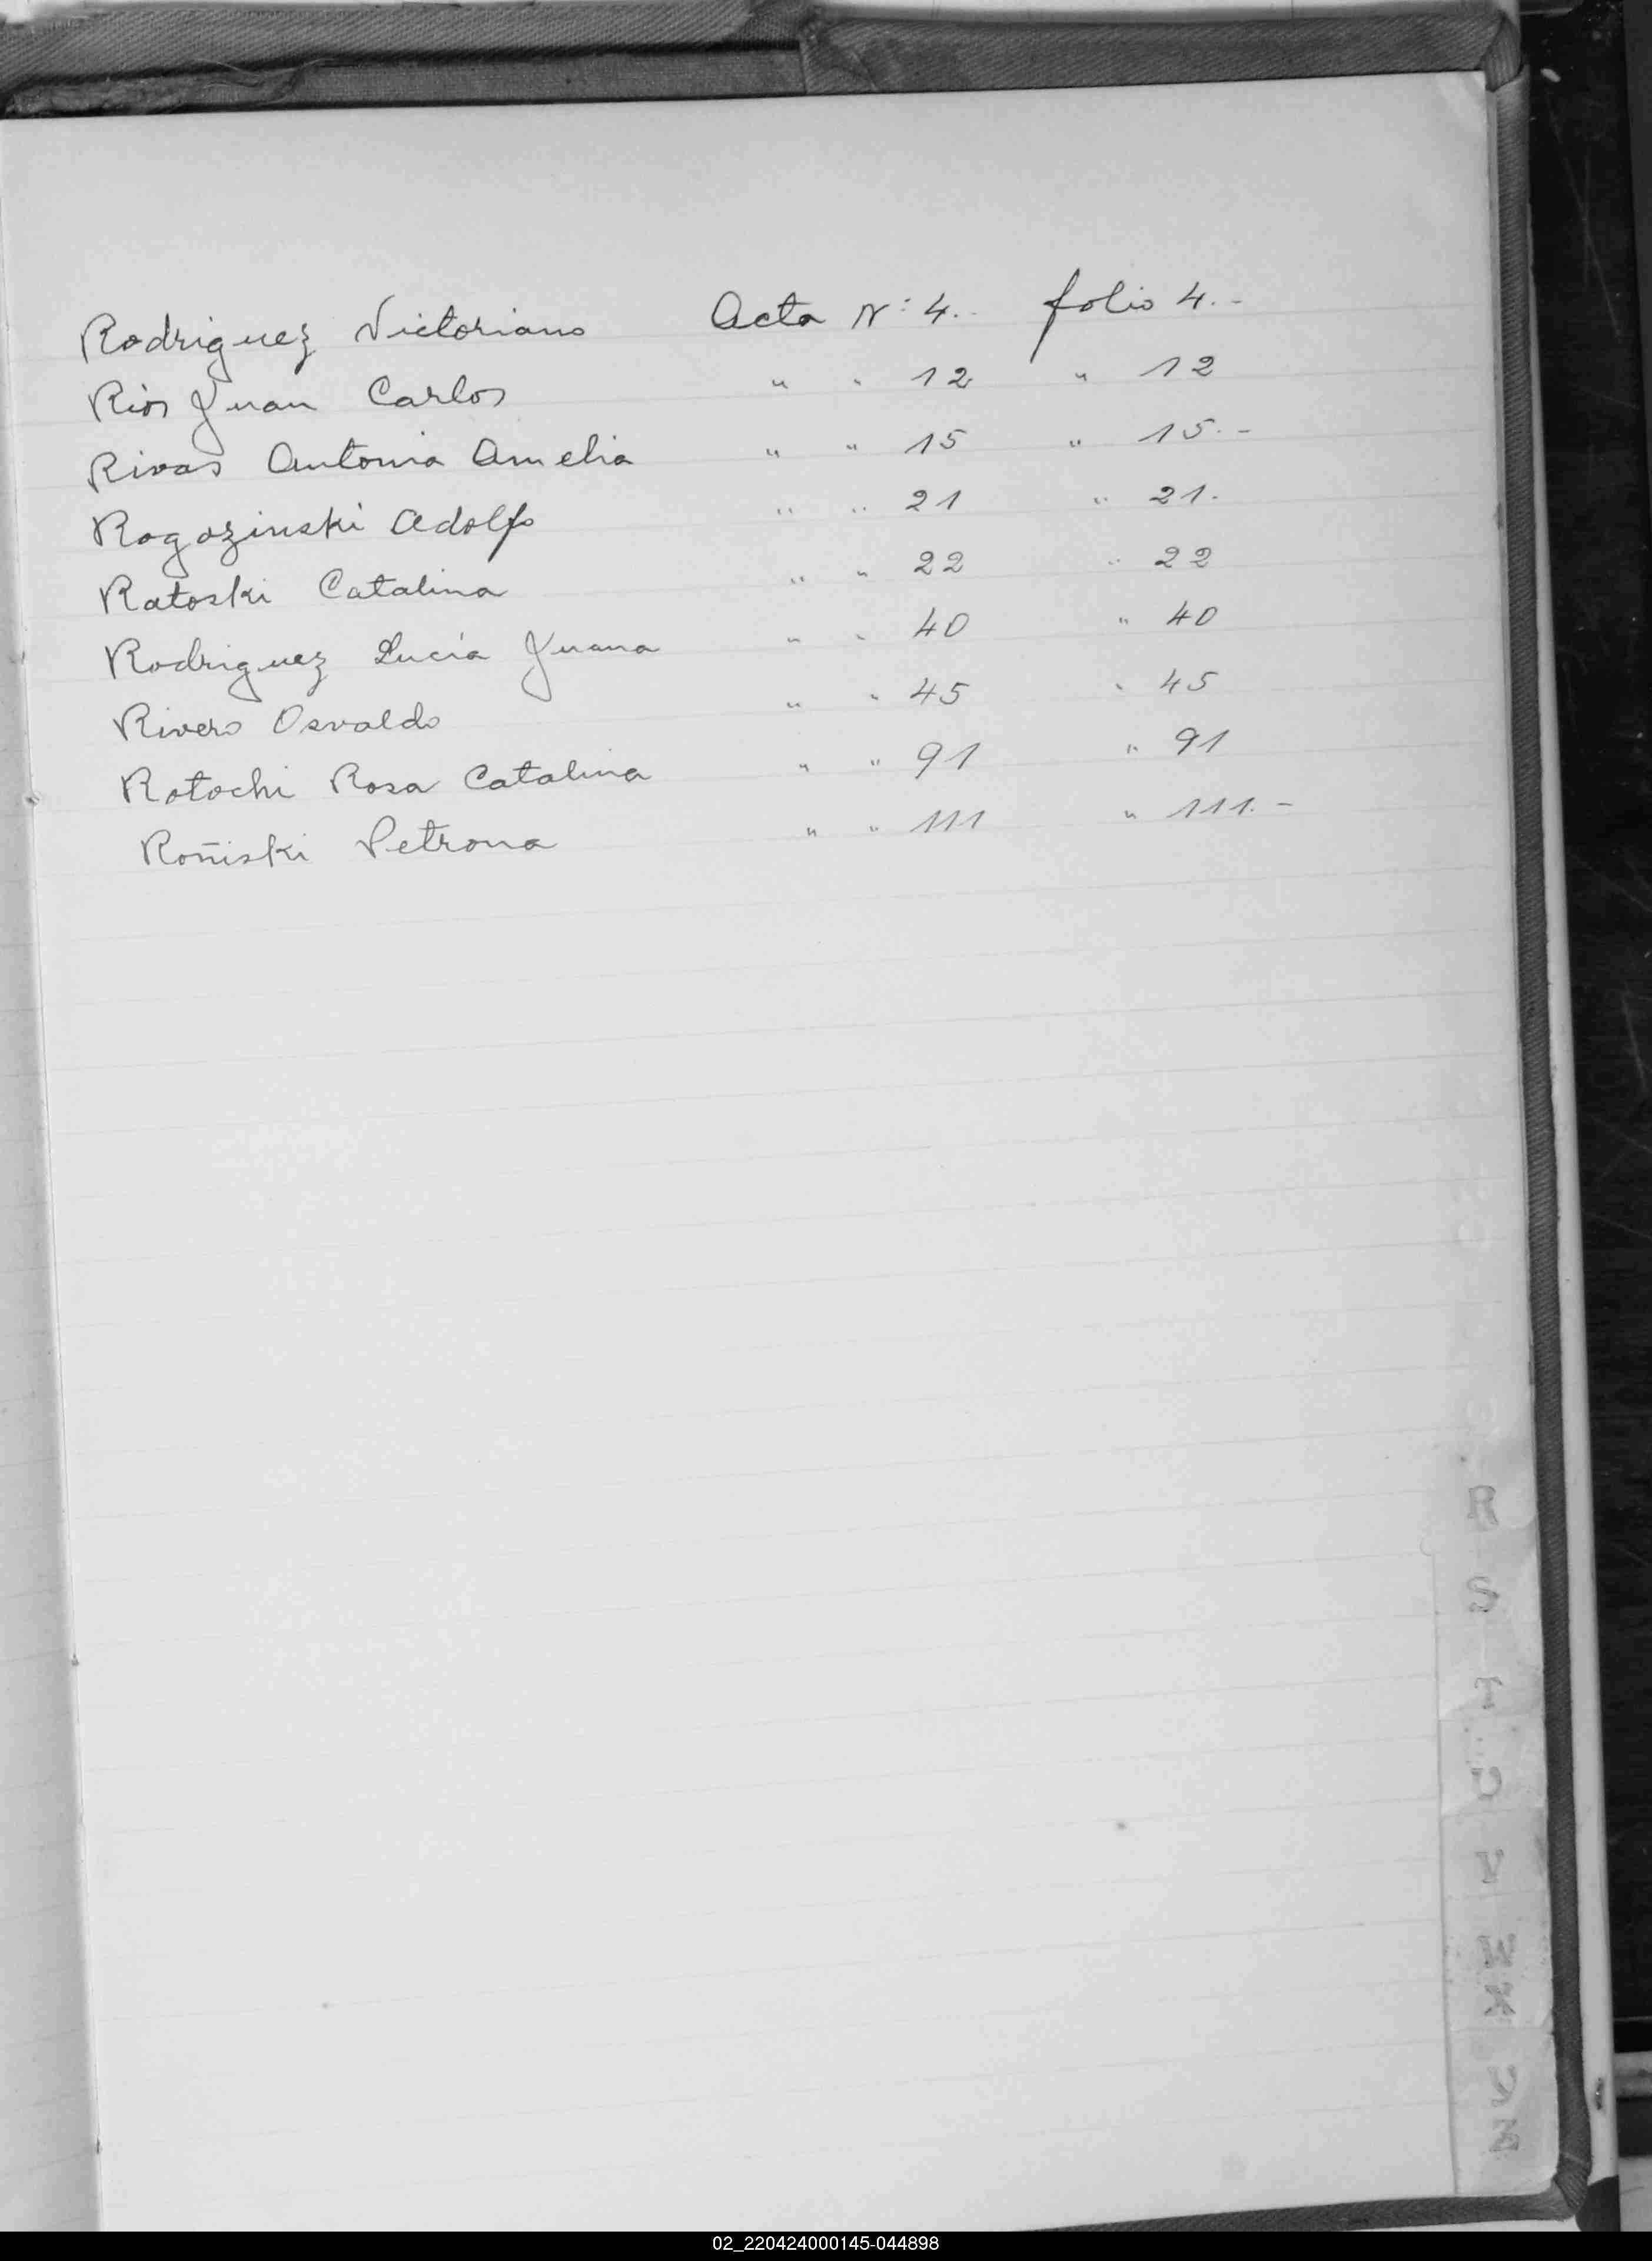 Rodriguez Victoriano Acta Nº: 4.. folio 4..-
Rios Juan Carlos " " 12 " 12
Rivas Antonia Amelia " " 15 " 15.-
Rogozinski Adolfo " " 21 " 21.
Ratoski Catalina " " 22 " 22
Rodriguez Lucía Juana " " 40 " 40
Rivero Osvaldo " " 45 " 45
Rotochi Rosa Catalina " " 91 " 91
Roñiski Petrona " " 111 " 111.-
R
S
T
U
V
02_220424000145-044898